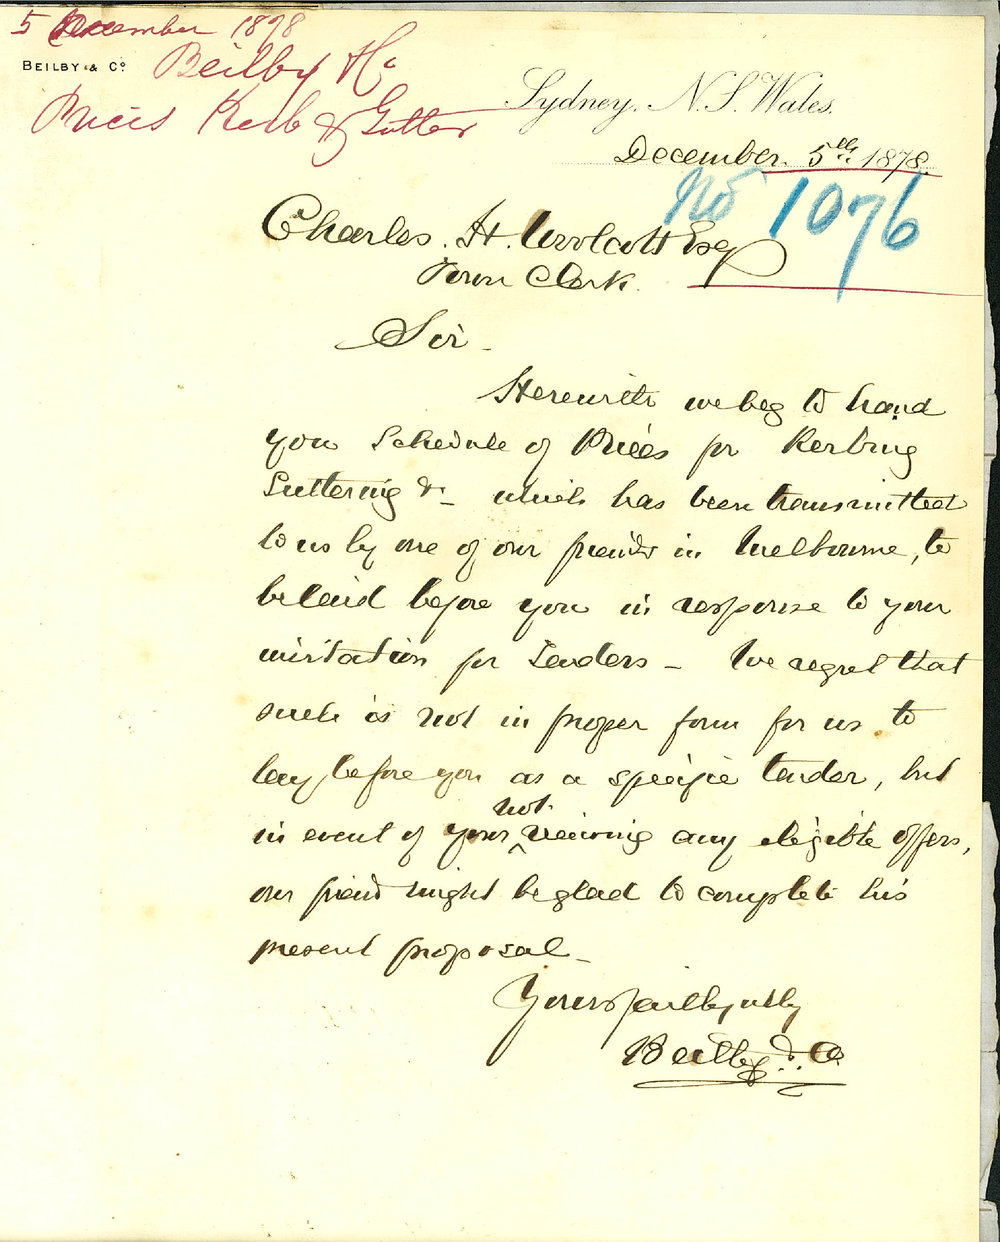 5 December 1878
BEILBY & Co.
Beilby & Co
Prices Kerb & Gutter
Sydney, N.S. Wales.
December. 5th. 1878.
No 1076
Charles. H. Woolcott Esq
Town Clerk.
Sir -
Herewith we beg to hand
you Schedule of Prices for Kerbing
Guttering &c - which has been transmitted
to us by one of our friends in Melbourne, to
be laid before you in response to your
invitation for Tenders - We regret that
such is not in proper form for us to
lay before you as a specific tender, but
in event of your not receiving any eligible offers,
our friend might be glad to complete his
present proposal -
Yours faithfully
Beilby & Co